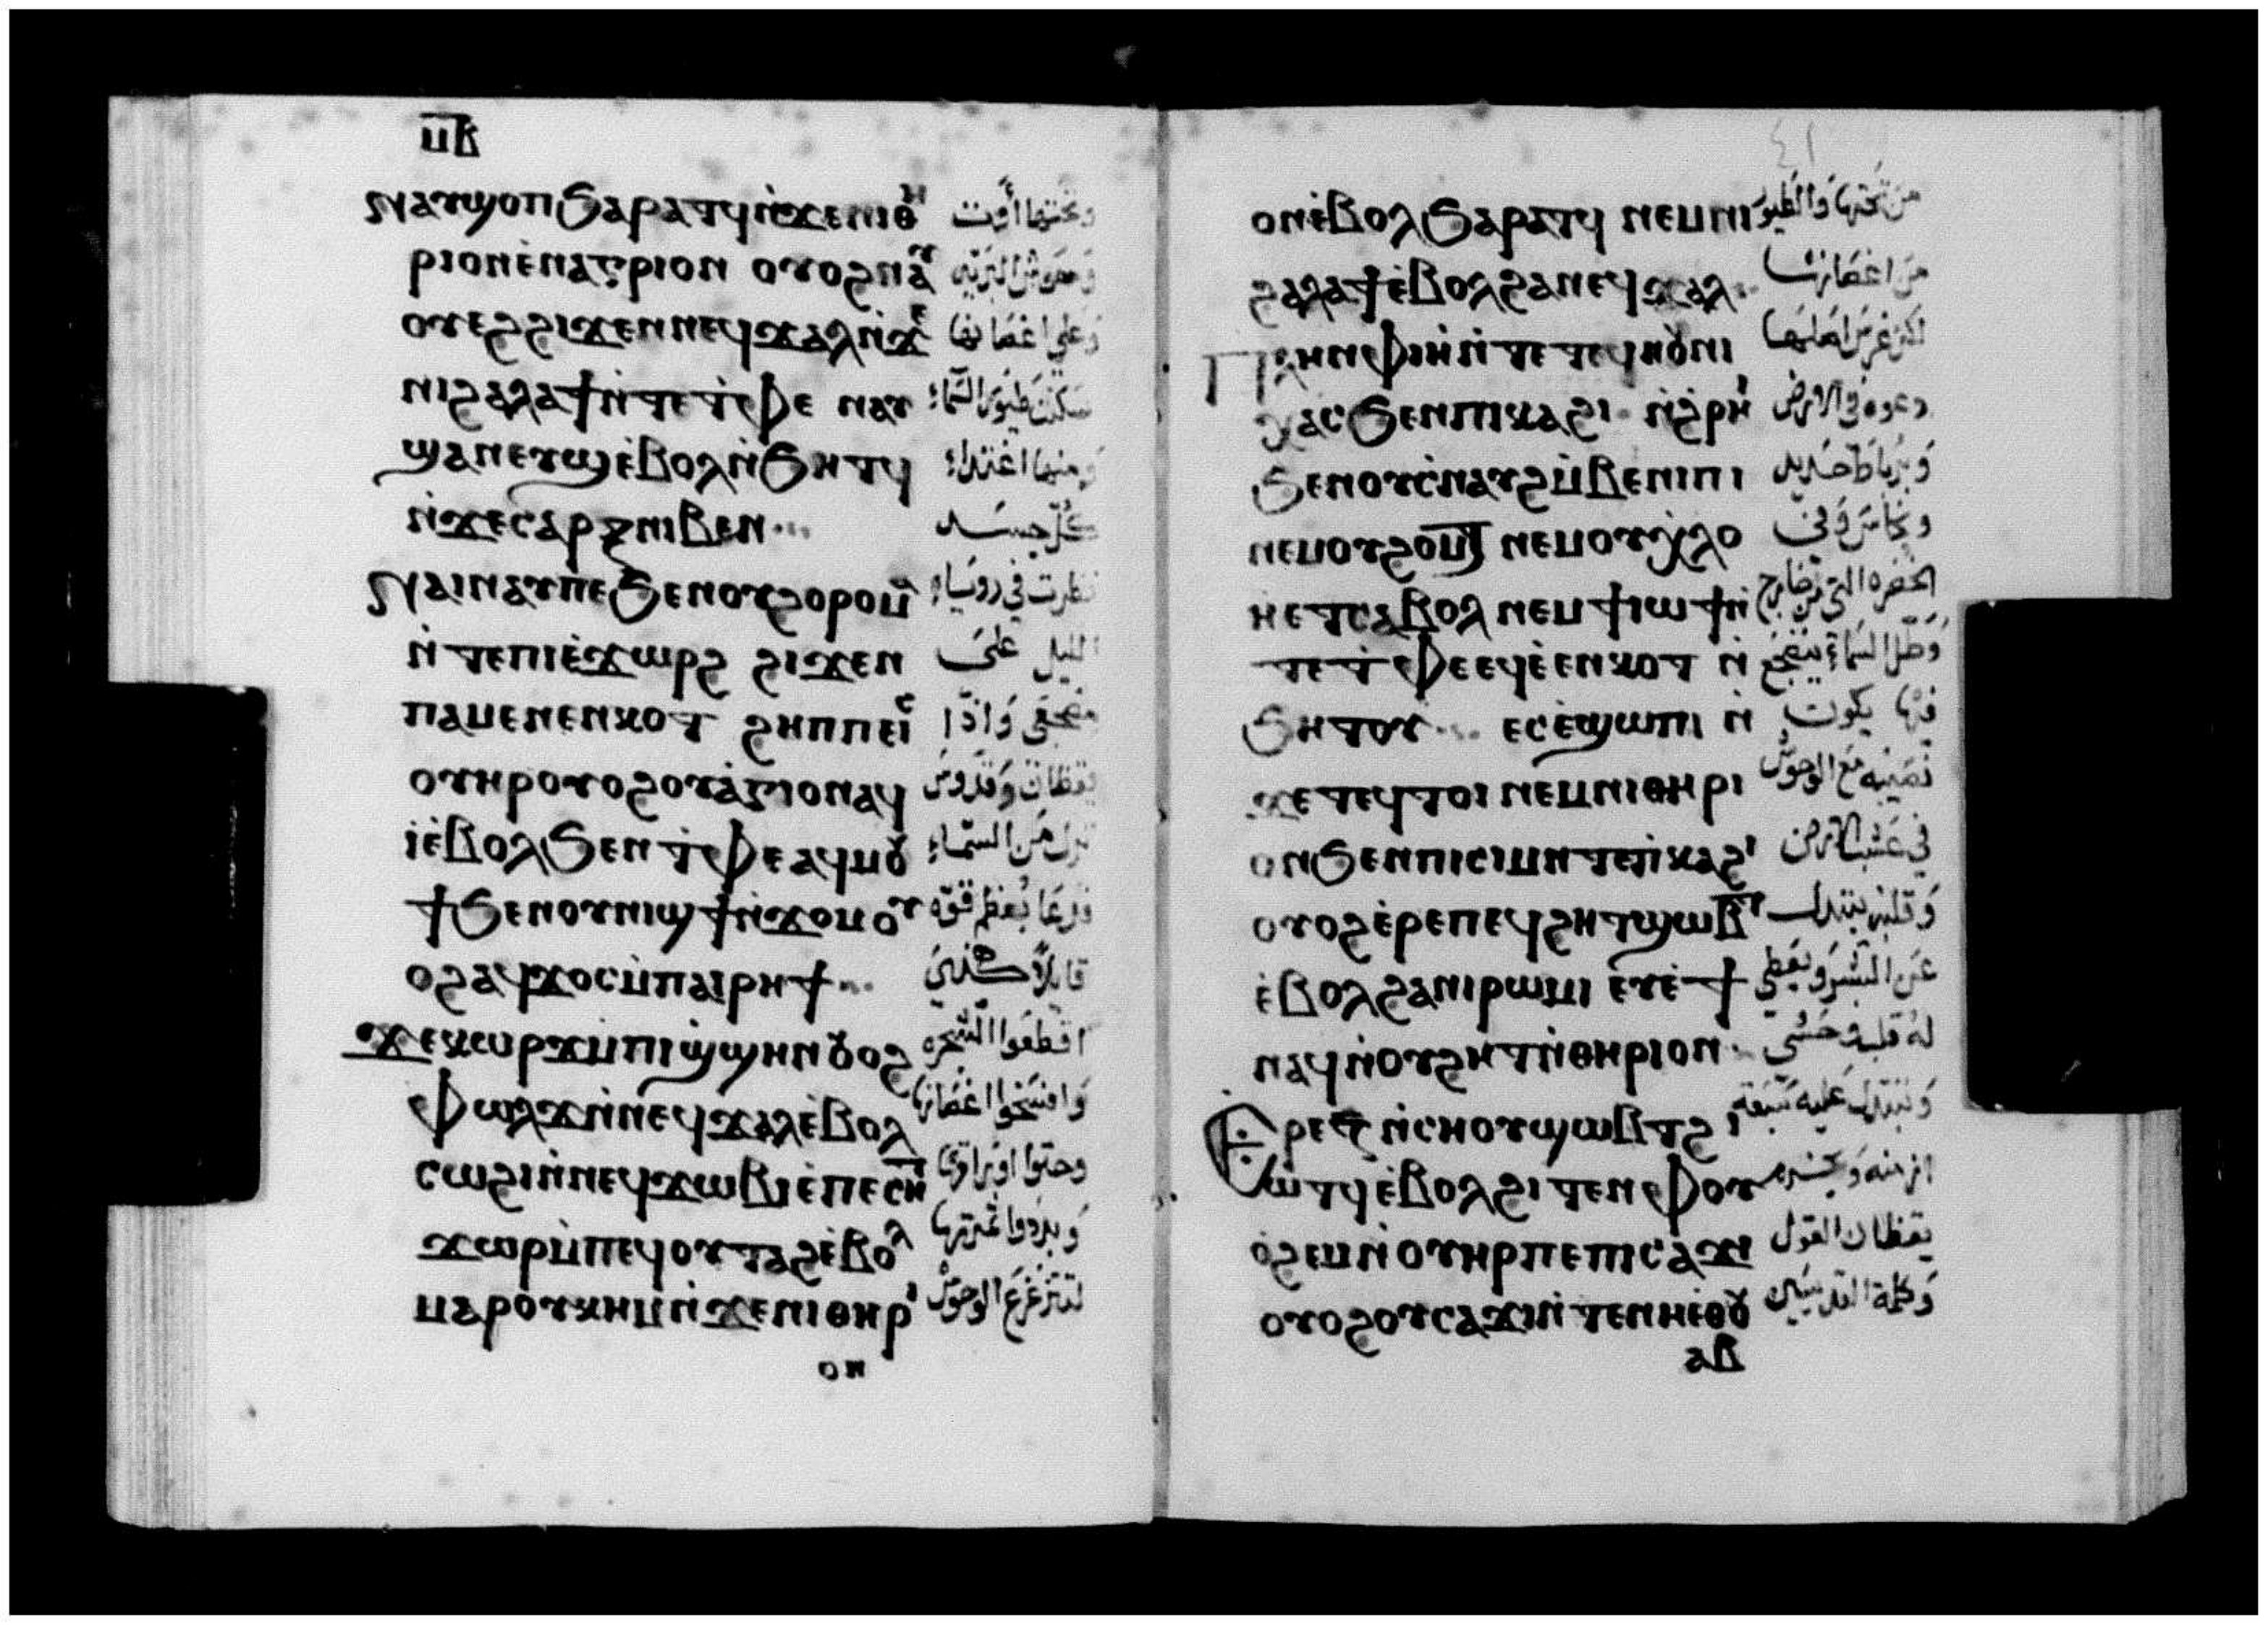 ⲙⲃ
ⲛⲁⲩϣⲟⲡ ϧⲁⲣⲁⲧϥ ⲛ̀ϫⲉⲛⲓⲑⲏ وتحتها أوت
ⲣⲓⲟⲛ ⲉⲛⲁⲅⲣⲓⲟⲛ ⲟⲩⲟϩ ⲛⲁⲩ وحوش البرية
ⲟⲩⲉϩ ϩⲓϫⲉⲛ ⲛⲉϥϫⲁⲗ ⲛ̀ϫⲉ وعلى اغصانها
ⲛⲓϩⲁⲗⲁϯ ⲛ̀ⲧⲉ ⲧ̀ⲫⲉ ⲛⲁⲩ سكنت طيور السماء
ϣⲁⲛⲉⲩϣ ⲉ̀ⲃⲟⲗ ⲛ̀ϧⲏⲧϥ ومنها اغتداء
ⲛ̀ϫⲉ ⲥⲁⲣⲝ ⲛⲓⲃⲉⲛ كل جسد
ⲛⲁⲓⲛⲁⲩ ⲡⲉ ϧⲉⲛ ⲟⲩϩⲟⲣⲟⲙⲁ نظرت في روياء
ⲛ̀ⲧⲉ ⲡⲓⲉ̀ϫⲱⲣϩ ϩⲓϫⲉⲛ الليل على
ⲡⲁⲙⲉⲛⲉⲛⲕⲟⲧ ϩⲏⲡⲡⲉ ⲓⲥ مضجعي واذا
ⲟⲩⲏⲣ ⲟⲩⲟϩ ⲟⲩⲁ̀ⲅⲓⲟⲛ ⲁϥ يقظان وقدوس
ⲓ̀ ⲉ̀ⲃⲟⲗ ϧⲉⲛ ⲧ̀ⲫⲉ ⲁϥⲙⲟⲩ نزل من السماء
ϯ ϧⲉⲛ ⲟⲩⲛⲓϣϯ ⲛ̀ϫⲟⲙ ⲟⲩ فدعا بعظم قوة
ⲟϩ ⲁϥϫⲟⲥ ⲙ̀ⲡⲁⲓⲣⲏϯ قايلا هكذي
ϫⲉ ⲕⲱⲣϫ ⲙ̀ⲡⲓϣ̀ϣⲏⲛ ⲟⲩⲟϩ اقطعوا الشجره
ⲫⲱⲗϫ ⲛ̀ⲛⲉϥϫⲁⲗ ⲉ̀ⲃⲟⲗ وافسخوا اغصانها
ⲥⲱϩⲓ ⲛ̀ⲛⲉϥϫⲱⲃⲓ ⲉ̀ⲡⲉⲥⲏⲧ وحتوا اوراقها
ϫⲱⲣ ⲙ̀ⲡⲉϥⲟⲩⲧⲁϩ ⲉ̀ⲃⲟⲗ وبددوا ثمرتها
ⲙⲁⲣⲟⲩⲕⲏⲙ ⲛ̀ϫⲉ ⲛⲓⲑⲏⲣⲓ لتتزعزع الوحوش
ⲟⲛ
٤١
ⲟⲛ ⲉ̀ⲃⲟⲗ ϧⲁⲣⲁⲧϥ ⲛⲉⲙ ⲛⲓ من تحتها والطيور
ϩⲁⲗⲁϯ ⲉ̀ⲃⲟⲗ ϩⲁ ⲛⲉϥϫⲁⲗ من اغصانها
ⲡⲗⲏⲛ ⲫⲓⲏ ⲛ̀ⲧⲉ ⲧⲉϥⲛⲟⲩⲛⲓ لكن غرس اصلها
ⲭⲁⲥ ϧⲉⲛ ⲡⲓⲕⲁϩⲓ ⲛ̀ϩⲣⲏⲓ دعوه في الارض
ϧⲉⲛ ⲟⲩⲥⲛⲁⲩϩ ⲙ̀ⲃⲉⲛⲓⲡⲓ وبرباط حديد
ⲛⲉⲙ ⲟⲩϩⲟⲙⲧ ⲛⲉⲙ ⲟⲩⲭⲗⲟ ونحاس وفي
ⲏ ⲉⲧⲥⲁⲃⲟⲗ ⲛⲉⲙ ϯⲓⲱϯ ⲛ̀ الخضره التي من خارج
ⲧⲉ ⲧ̀ⲫⲉ ⲉϥⲉ̀ⲉⲛⲕⲟⲧ ⲛ̀ وطل السماء يضجع
ϧⲏⲧⲟⲩ ⲉⲥⲉ̀ϣⲱⲡⲓ ⲛ̀ فيها يكون
ϫⲉ ⲧⲉϥⲧⲟⲓ ⲛⲉⲙ ⲛⲓⲑⲏⲣⲓ نصيبه مع الوحوش
ⲟⲛ ϧⲉⲛ ⲡⲓⲥⲓⲙ ⲛ̀ⲧⲉ ⲡ̀ⲕⲁϩⲓ في عشب الارض
ⲟⲩⲟϩ ⲉ̀ⲣⲉ ⲡⲉϥϩⲏⲧ ϣⲱⲃⲧ وقلبه يتبدل
ⲉ̀ⲃⲟⲗ ϩⲁ ⲛⲓⲣⲱⲙⲓ ⲉⲩⲉ̀ϯ عن البشر ويعطى
ⲛⲁϥ ⲛ̀ⲟⲩϩⲏⲧ ⲛ̀ⲑⲏⲣⲓⲟⲛ له قلب وحشي
ⲉⲣⲉ ⲍ ⲛ̀ⲥⲏⲟⲩ ϣⲱⲃⲧ ϩⲓ وتتبدل عليه سبعة
ⲱⲧϥ ⲉ̀ⲃⲟⲗϩⲓⲧⲉⲛ ⲫⲟⲩ
ⲟϩⲉⲙ ⲛ̀ⲟⲩⲏⲣ ⲡⲉ ⲡⲓⲥⲁϫⲓ يقظان القول
ⲟⲩⲟϩ ⲟⲩⲥⲁϫⲓ ⲛ̀ⲧⲉ ⲛⲏⲉ̀ⲑⲟⲩ وكلمة القديسين
ⲁⲃ